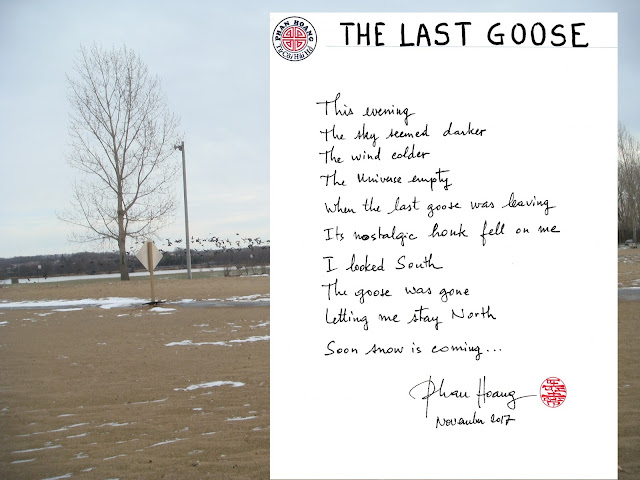 PHAN HOANG
THE LAST GOOSE
This evening
The sky seemed darker
The wind colder
The Universe empty
When the last goose was leaving
Its nostalgic honk fell on me
I looked South
The goose was gone
Letting me stay North
Soon snow is coming...
Phan Hoang
November 2017